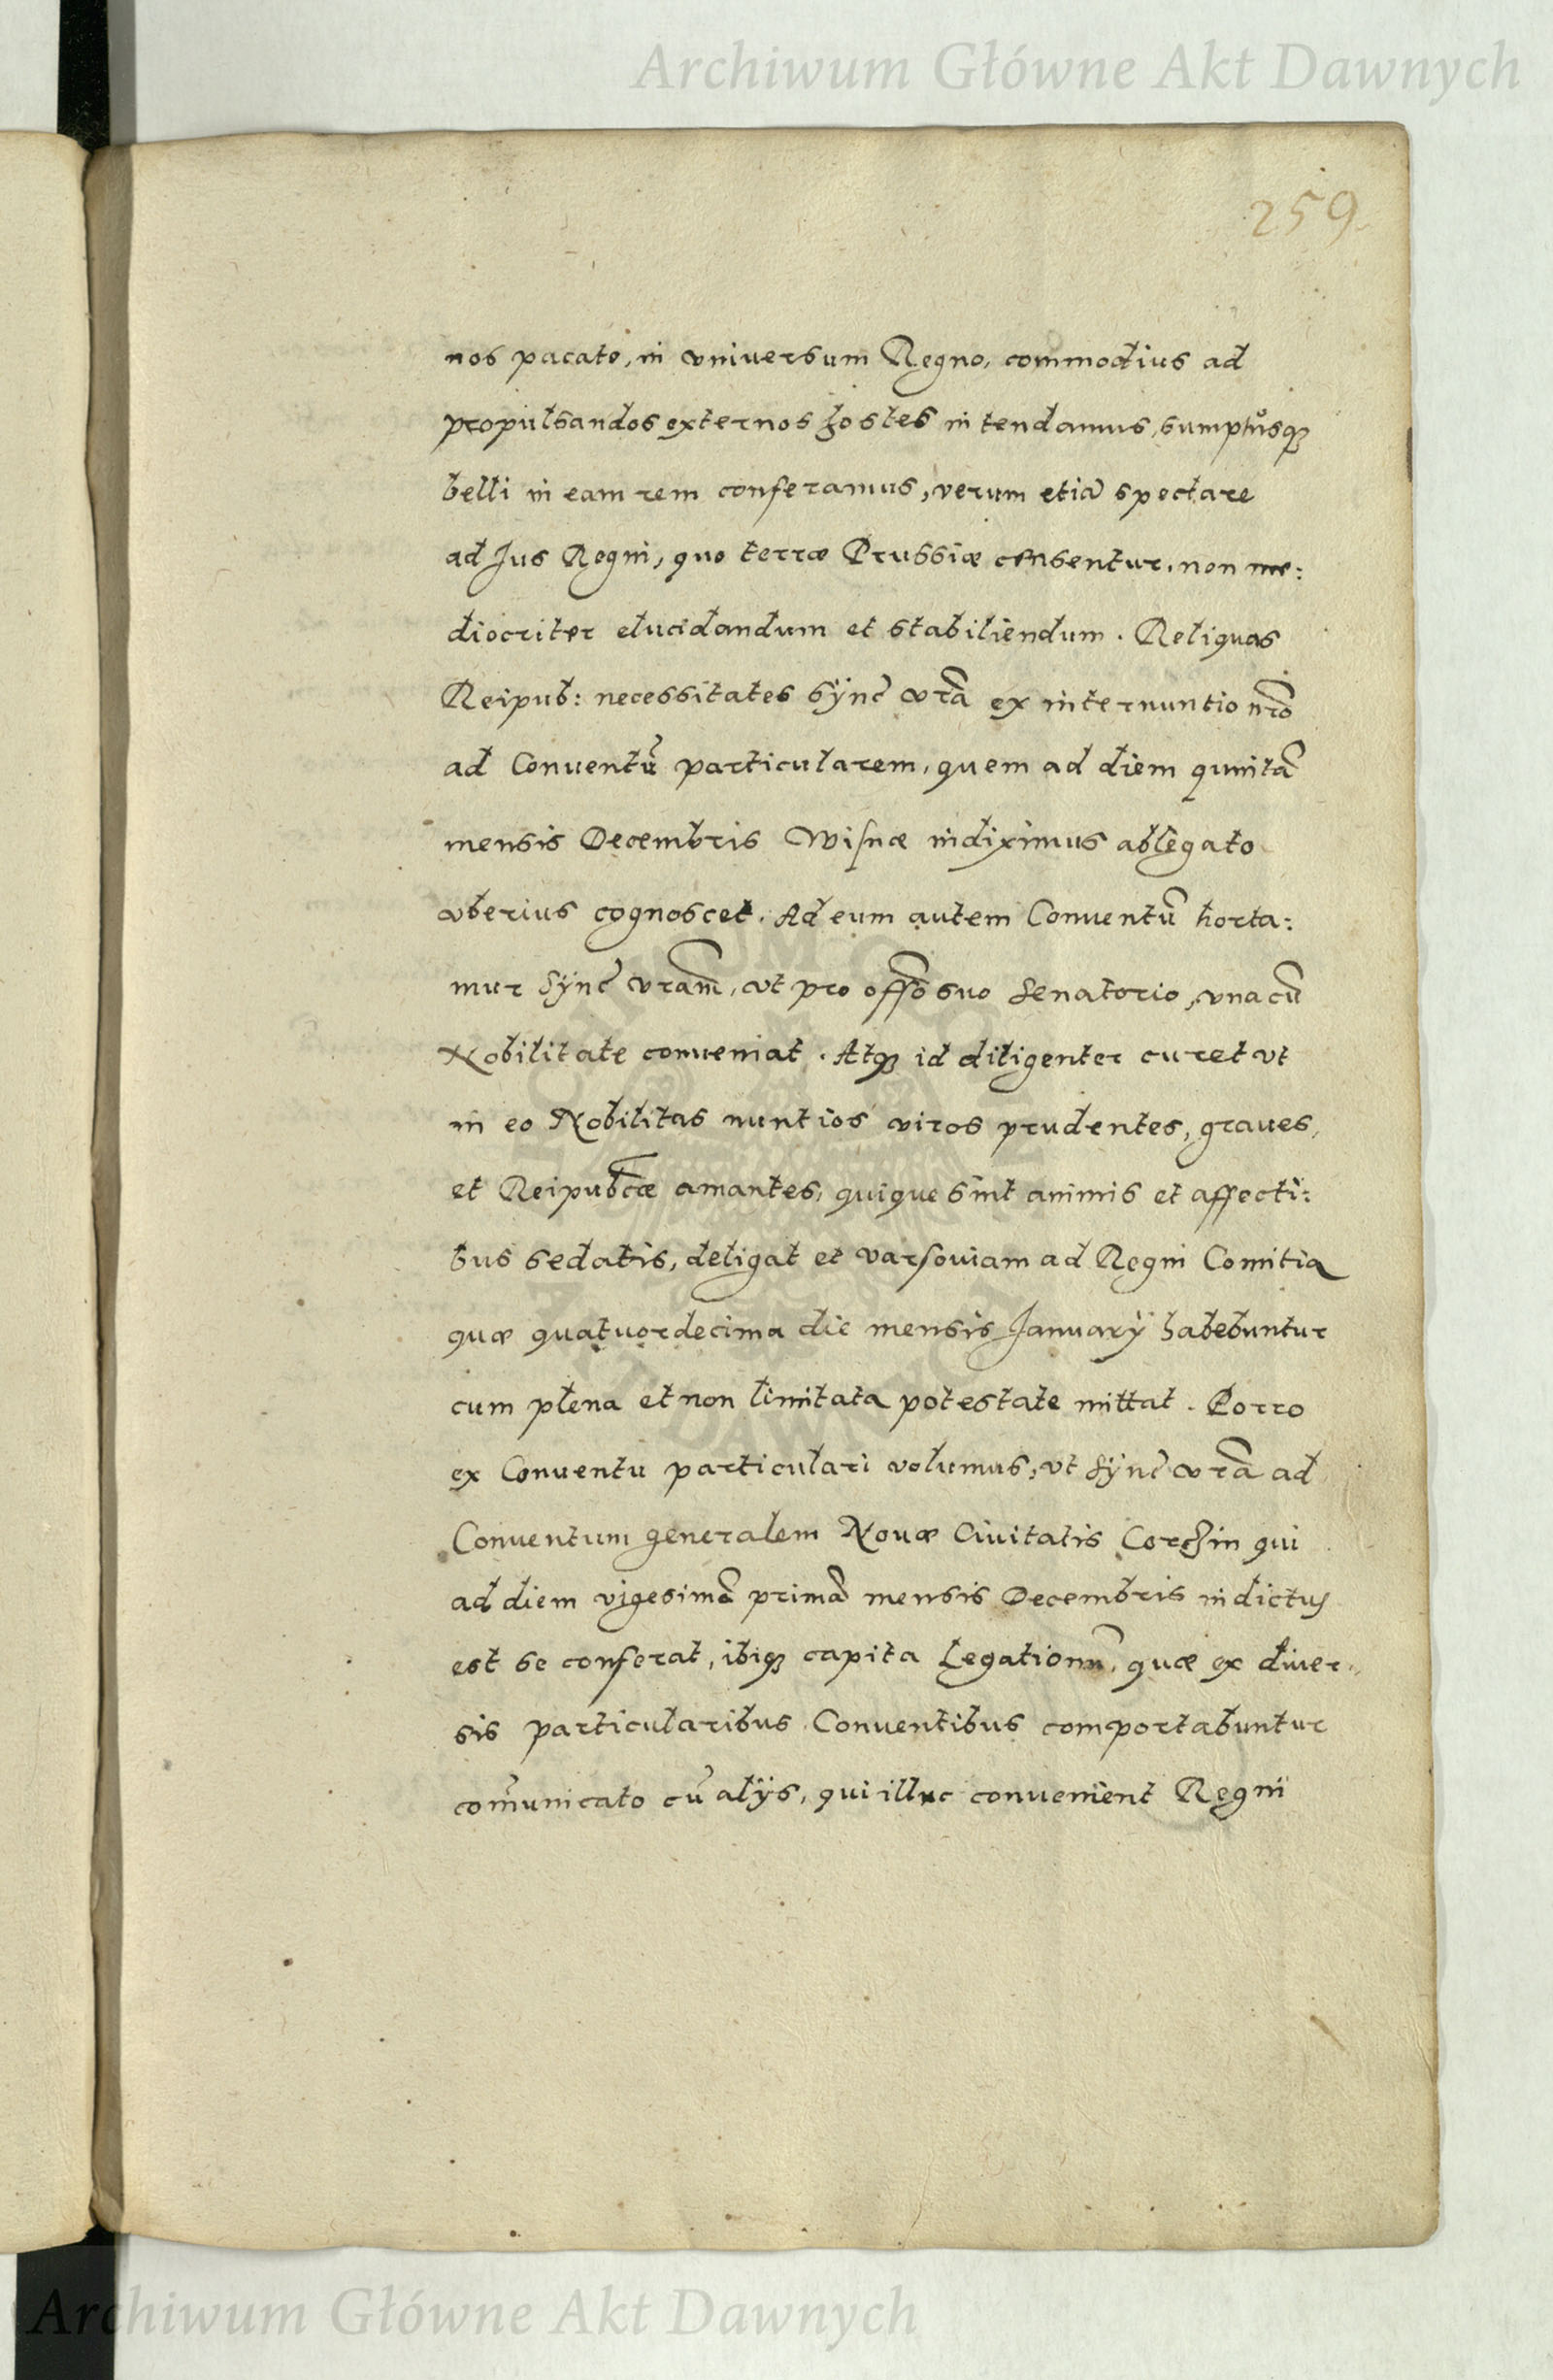 Archiwum Główne Akt Dawnych
259
nos pacato, in vniuersum Regno, commodius ad
propulsandos externos hostes intendamus, sumptusq3
belli in eam rem conferamus, verum etiã spectare
ad Jus Regni, quo terræ Prussiæ censentur, non me:
diocriter elucidandum et stabiliendum. Reliquas
Reipub: necessitates Synč vrã ex internuntio nrõ
ad Conuentũ particularem, quem ad diem quintã
mensis Decembris Wisnæ indiximus ablegato
vberius cognoscet. Ad eum autem Conuentũ horta:
mur Synč vram̃, vt pro offõ suo Senatorio, vna cũ
Nobilitate conueniat. Atq3 id diligenter curet vt
in eo Nobilitas nuntios viros prudentes, graues,
et Reipubcæ amantes, quique sint animis et affecti:
bus sedatis, deligat et varsouiam ad Regni Comitia
quæ quatuordecima die mensis Januarÿ habebuntur
cum plena et non limitata potestate mittat. Porro
ex Conuentu particulari volumus, vt Synč vrã ad
Conuentum generalem Nouæ Ciuitatis Corczin qui
ad diem vigesimã primã mensis Decembris indictus
est se conferat, ibiq3 capita Legationũ, quæ ex diuer„
sis particularibus Conuentibus comportabuntur
com̃unicato cũ alÿs, qui illuc conuenient Regni
Archiwum Główne Akt Dawnych